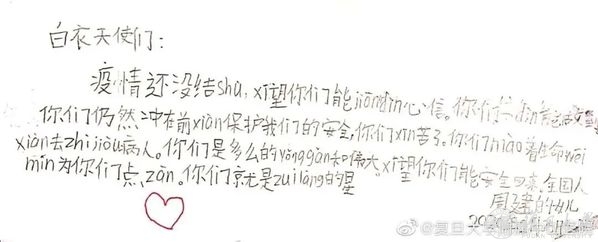 白衣天使们：
疫情还没结shù，xī望你们能jiāndìn心信。你们
你们仍然冲在前xiàn保护我们的安全，你们xīn苦了。你们mào着生命wēi
xiǎn去zhìjiòu病人。你们是多么的yǒnggǎn和伟大，xī望你们能安全回来，全国人
mín为你们点zàn。你们就是zuìlàng的星
周建的女儿
@复旦大学